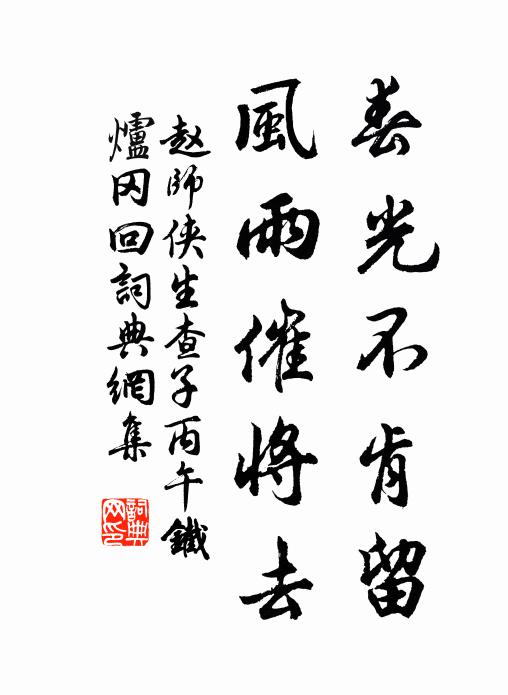 春光不肯留
風雨催將去
赵師侠生查子丙午鐵
爐冈回詞典網集
詞典网印